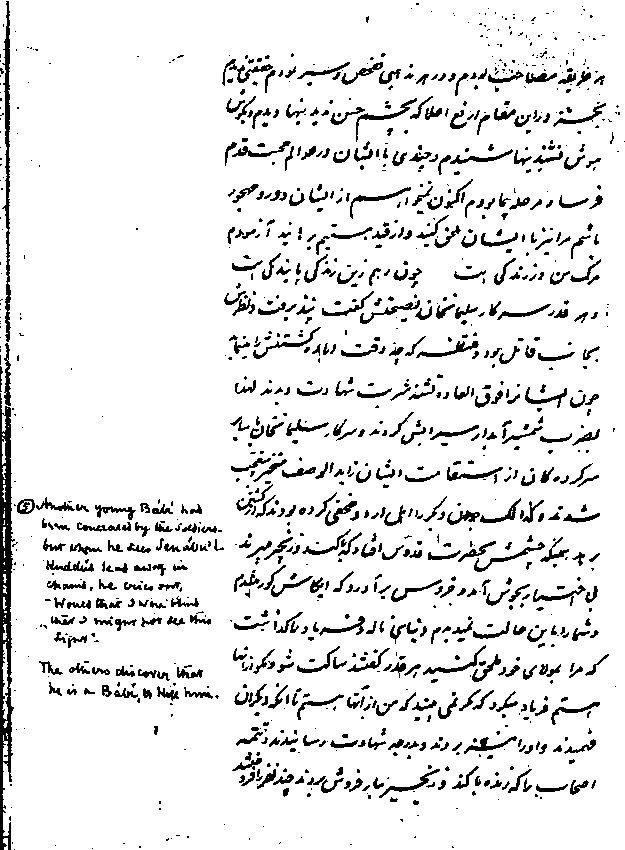 هر طریقه مصاحب بودم و در هر مذهبی تفحص و سیر نمودم حقیقتی ندیدم
نجستم و در این مقام ارفع اعلا که بچشم حسن ندیدنیها دیدم و بگوش
هوش نشنیدنیها شنیدم و چندی با ایشان در عوالم محبت قدم
فرسا و مرحله پیما بودم اکنون نمیخواهم از ایشان دور و مهجور
باشم مرا نیز با ایشان ملحق کنید و از قید هستیم برهانید آزمودم
مرگ من در زندگی است چون رهم زین زندگی پایندگی است
و هر قدر سرکار سلیمانخان نصیحتش گفت نپذیرفت و نظرش
بجانب قاتل بود و منتظر که چه وقت اراده کشتنش را نماید
چون ایشانرا فوق العاده تشنه شربت شهادت دیدند لهذا
بضرب شمشیر آبدار سیرابش کردند و سرکار سلیمانخان با سایر
سرکرده گان از استقامت ایشان زاید الوصف متحیر و متعجب
شدند و کذالک جوان دیگر را اهل اردو مخفی کرده بودند که از کشتن
برهد بمحض که چشمش بحضرت قدوس افتاد که با کت و زنجیر میبرند
بی اختیار بجوش آمد و خروش برآورد که ایکاش کور میشدم
و شما را باین حالت نمیدیدم و بنای ناله و فریاد را گذاشت
که مرا بمولای خود ملحق کنید هر قدر گفتند ساکت شو و نگو از اینها
هستم فریاد میکرد که مگر نمی بینید که من از آنها هستم تا آنکه دیگران
فهمیدند و او را نیز بردند و بدرجه شهادت رسانیدند و تتمه
اصحاب را که زنده با کند و زنجیر ببارفروش بردند چند نفر را فروختند
⑤ Another young Bábí had
been concealed by the soldiers.
but when he sees Jenáb-i-
Kuddús lead away in
chains, he cries out,
"Would that I were blind
that I might not see this
sight".
The others discover that
he is a Bábí, & kill him.